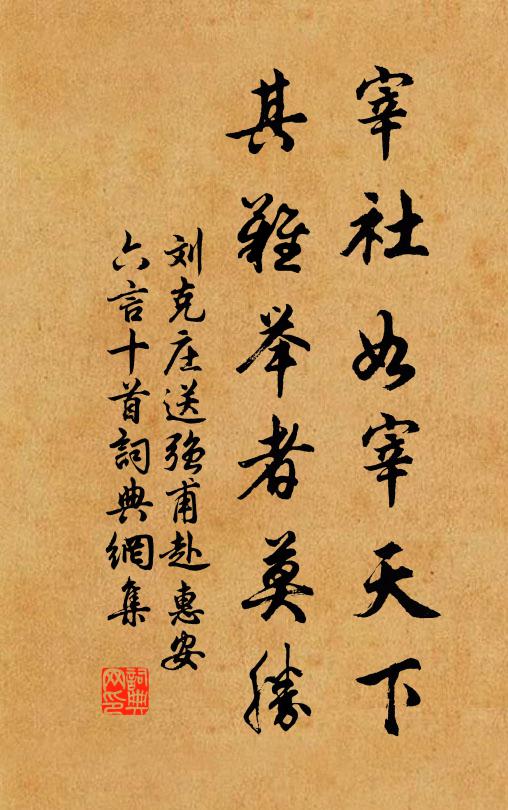 宰社如宰天下
其難举者莫勝
刘克庄送强甫赴惠安
六言十首詞典網集
詞典網印